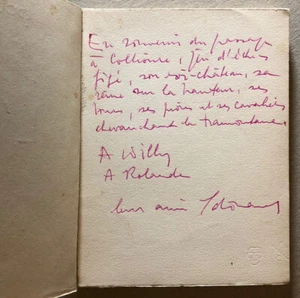 En souvenir du passage
à Collioure, jeu d'échec
figé, son roi-château, sa
reine sur la hauteur, ses
tours, ses pions et ses cavaliers
chevauchant la tramontane.
A Willy
A Rolande
leur ami